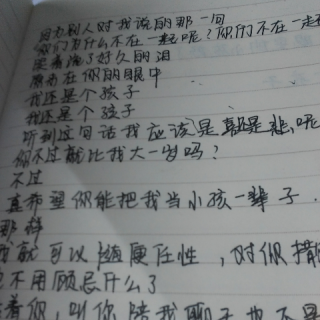 因为别人对我说的那一句
你们为什么不在一起呢？你们不在一起
哭着流了好久的泪
原来在你的眼中
我还是个孩子
我还是个孩子
听到这句话我应该是喜还是悲，呢
你不过就比我大一岁吗？
不过
真希望你能把我当小孩一辈子．
那样
我就可以随便任性，对你撒
也不用顾忌什么了
着你，叫你陪我聊天也不是